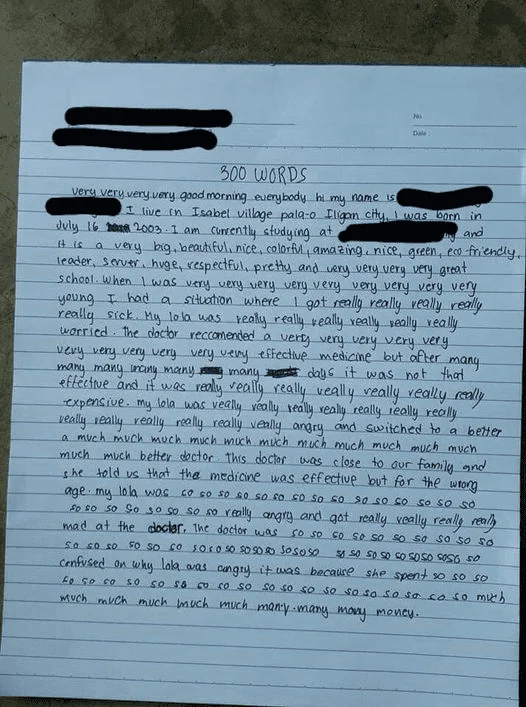 No.
Date:
300 WORDS
very very very very good morning everybody hi my name is
I live in Isabel village pala-o Iligan city, I was born in
July 16 2003. I am currently studying at and
it is a very big, beautiful, nice, colorful, amazing, nice, green, eco friendly,
leader, server, huge, respectful, pretty and very very very very great
school. When I was very very very very very very very very very
young I had a situation where I got really really really really
really sick. My lola was really really really really really really
worried. The doctor reccomended a very very very very very
very very very very very very effective medicine but after many
many many many many many days it was not that
effective and it was really really really really really really really
expensive. my lola was really really really really really really really
really really really really really really angry and switched to a better
a much much much much much much much much much much much
much much better doctor. this doctor was close to our family and
she told us that the medicine was effective but for the wrong
age. my lola was so so so so so so so so so so so so so so
so so so so so so so so really angry and got really really really really
mad at the doctor. The doctor was so so so so so so so so so so
so so so so so so so so so so so so so so so so so so so so so so so so
confused on why lola was angry it was because she spent so so so
so so so so so so so so so so so so so so so so so so so much
much much much much much many many many money.